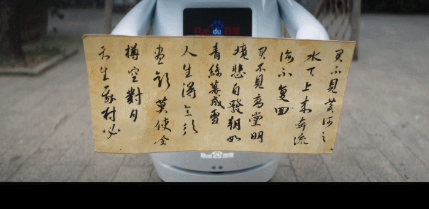 Bai du 百度
君不見黃河之
水天上来奔流
海不復回
君不見高堂明
鏡悲白髮朝如
青絲暮成雪
人生得意須
盡歡莫使金
樽空對月
天生我材必